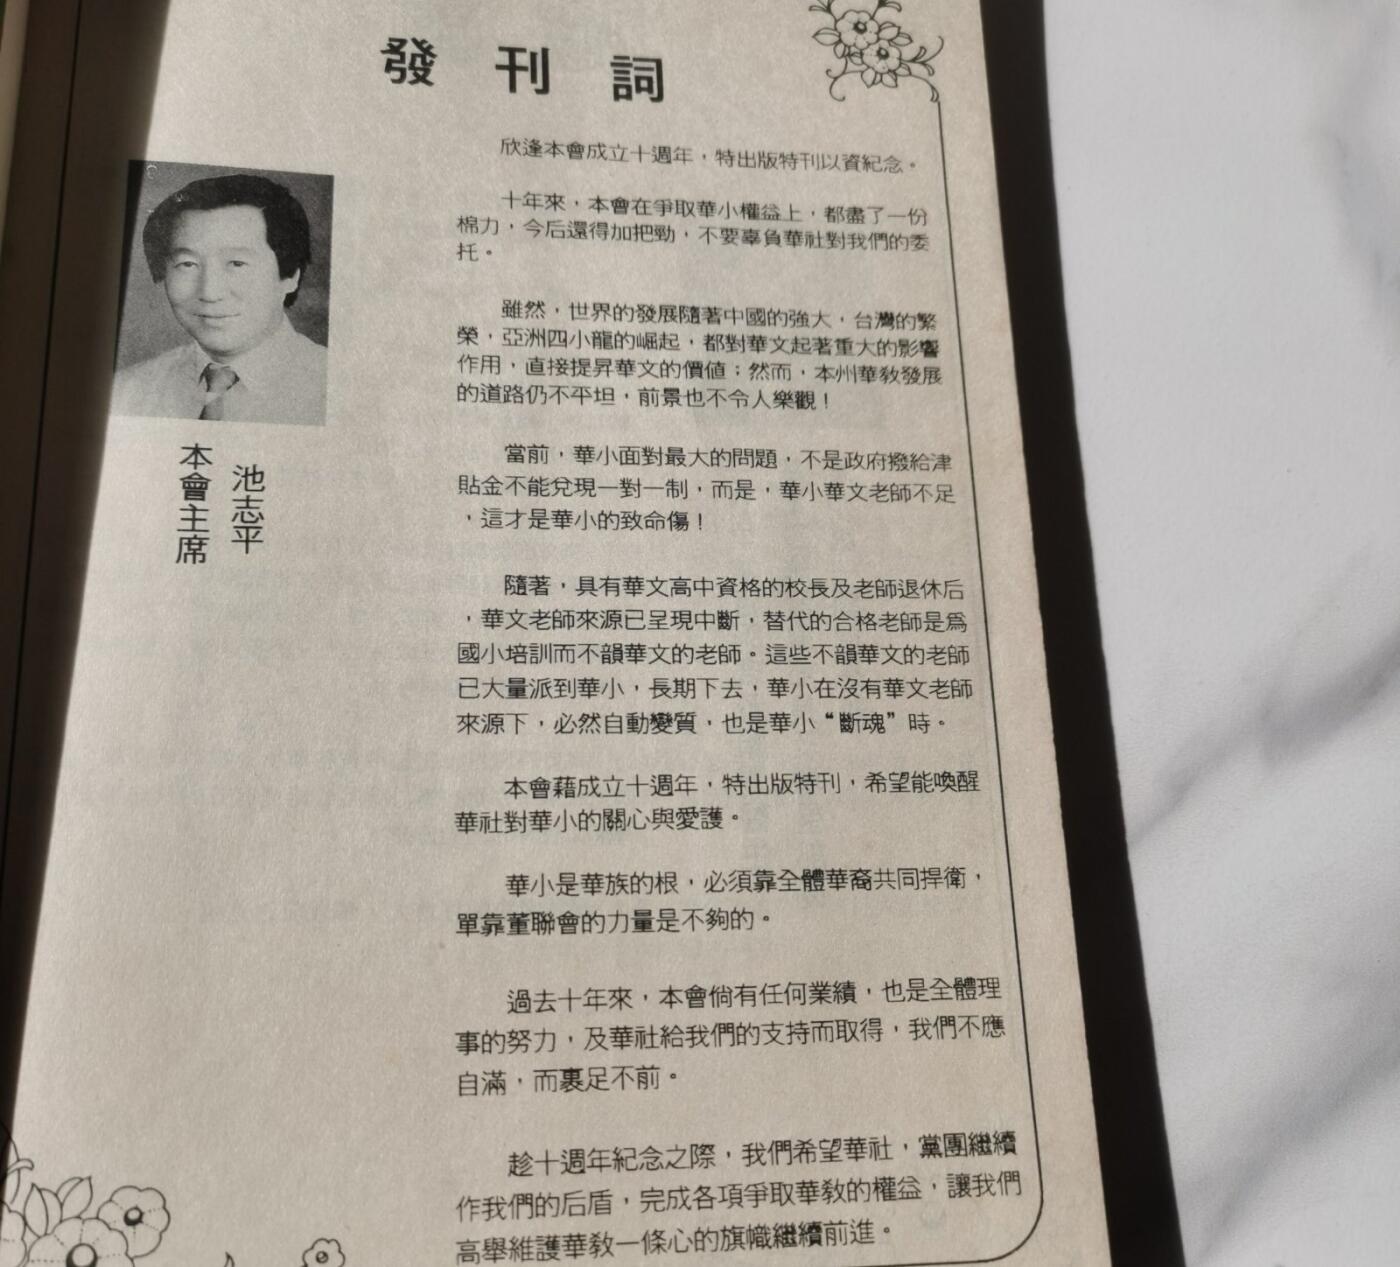 發刊詞
本會主席
池志平
欣逢本會成立十週年，特出版特刊以資紀念。
十年來，本會在爭取華小權益上，都盡了一份
棉力，今后還得加把勁，不要辜負華社對我們的委
托。
雖然，世界的發展隨著中國的強大，台灣的繁
榮，亞洲四小龍的崛起，都對華文起著重大的影響
作用，直接提昇華文的價值；然而，本州華教發展
的道路仍不平坦，前景也不令人樂觀！
當前，華小面對最大的問題，不是政府撥給津
貼金不能兌現一對一制，而是，華小華文老師不足
，這才是華小的致命傷！
隨著，具有華文高中資格的校長及老師退休后
，華文老師來源已呈現中斷，替代的合格老師是爲
國小培訓而不韻華文的老師。這些不韻華文的老師
已大量派到華小，長期下去，華小在沒有華文老師
來源下，必然自動變質，也是華小“斷魂”時。
本會藉成立十週年，特出版特刊，希望能喚醒
華社對華小的關心與愛護。
華小是華族的根，必須靠全體華裔共同捍衛，
單靠董聯會的力量是不夠的。
過去十年來，本會倘有任何業績，也是全體理
事的努力，及華社給我們的支持而取得，我們不應
自滿，而裹足不前。
趁十週年紀念之際，我們希望華社，黨團繼續
作我們的后盾，完成各項爭取華教的權益，讓我們
高舉維護華教一條心的旗幟繼續前進。